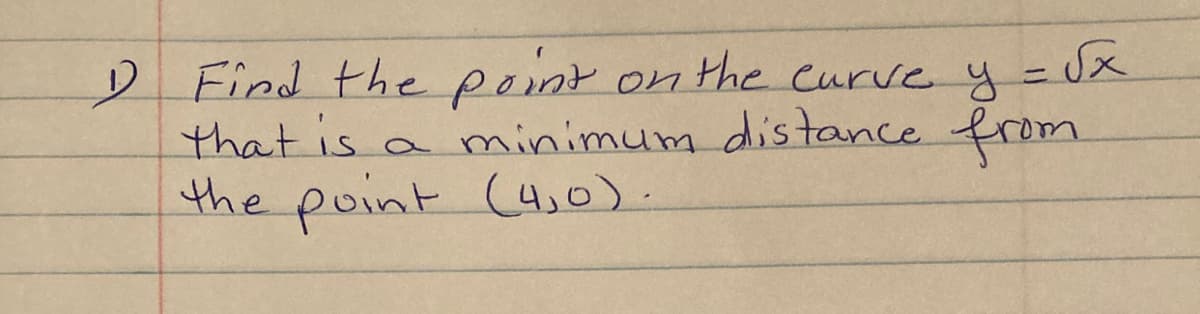 1) Find the point on the curve y = √x
that is a minimum distance from
the point (4,0).